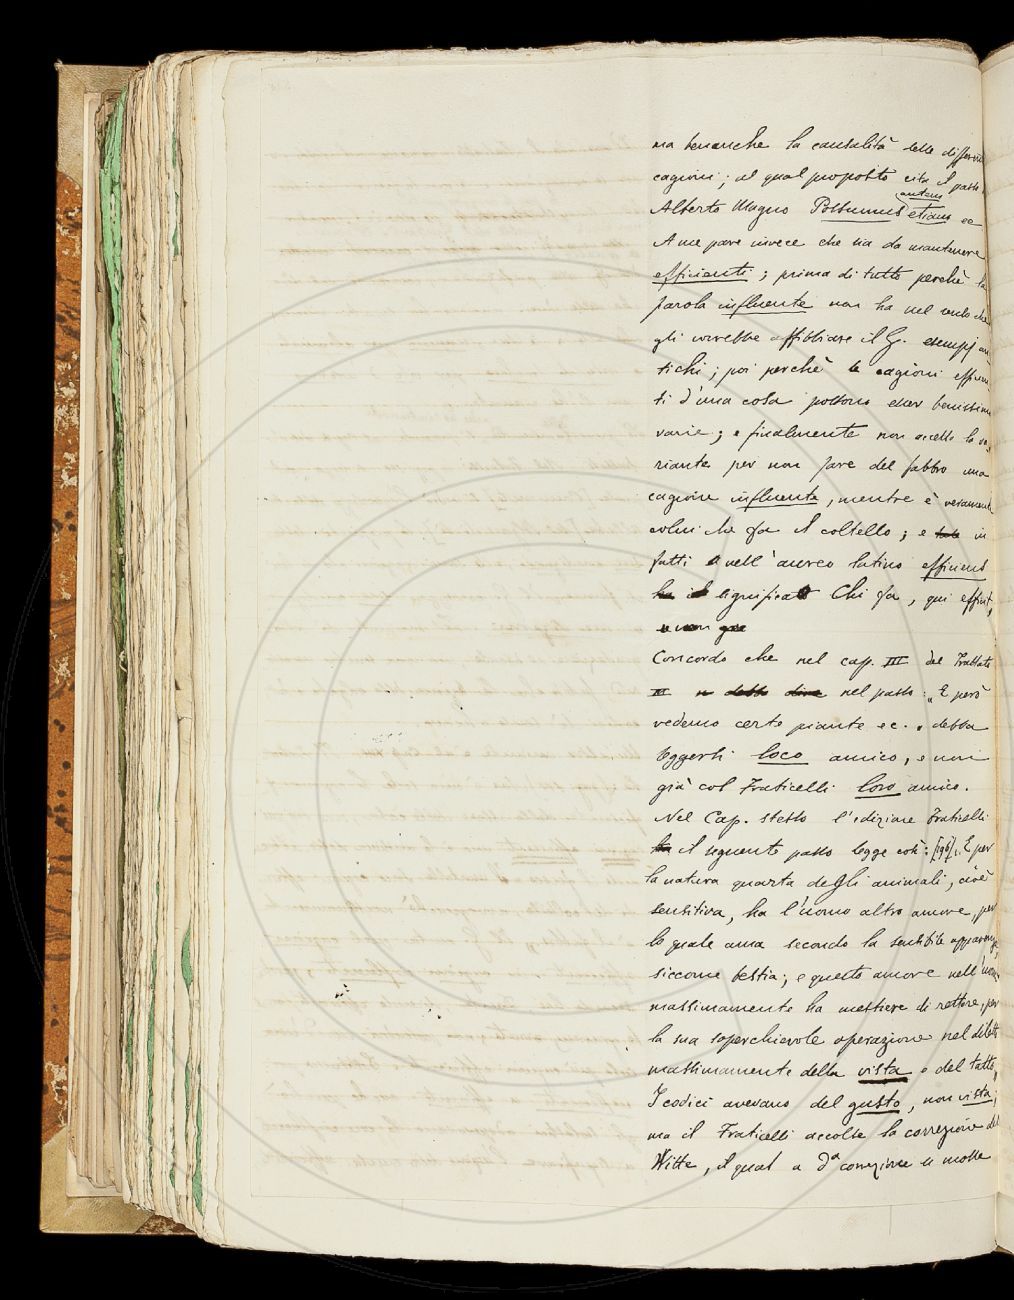 ma benanche la causalità delle differenti
cagioni; al qual proposito cita il passo
autem
Alberto Magno Possumus etiam ec
A me pare invece che sia da mantenere
efficienti; prima di tutto perchè la
parola influente non ha nel senso che
gli vorrebbe affibbiare il G. esempj an-
tichi; poi perchè le cagioni efficien-
ti d'una cosa possono esser benissimo
varie; e finalmente non accetto la va-
riante per non fare del fabbro una
cagione influente, mentre è veramente
colui che fa il coltello; e in
fatti nell'aureo latino efficiens
ha il significato Chi fa, qui efficit,
e non già
Concordo che nel cap. III del Trattato
III nel passo: „E però
vedemo certe piante ec. „ debba
leggersi loco amico, e non
già col Fraticelli loro amico.
Nel Cap. stesso l'edizione Fraticelli
ha il seguente passo legge così: [196] „E per
la natura quarta degli animali, cioè
sensitiva, ha l'uomo altro amore, per
lo quale ama secondo la sensibile apparenza,
siccome bestia; e questo amore nell'uomo
massimamente ha mestiere di rettore, per
la sua soperchievole operazione nel diletto
massimamente della vista e del tatto„
I codici avevano del gusto, non vista;
ma il Fraticelli accolse la correzione del
Witte, il qual a dª correzione si mosse